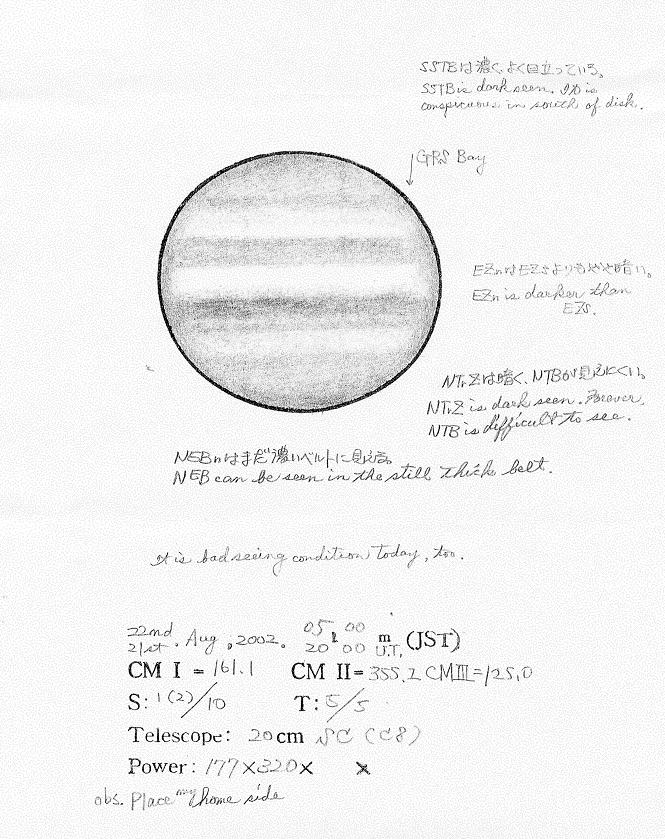 SSTBは濃く、よく目立っている。
SSTB is dark seen. It is
conspicuous in south of disk.
GRS Bay
EZnはEZsよりもやや暗い。
EZn is darker than
EZs.
NTrZは暗く、NTBが見えにくい。
NTrZ is dark seen. Forever,
NTB is difficult to see.
NEBnはまだ濃いベルトに見える。
NEB can be seen in the still thick belt.
It is bad seeing condition today, too.
22nd 05h 00m (JST)
21st. Aug, 2002. 20 00 U.T.
CM I = 161.1 CM II = 355.2 CMIII=125.0
S: 1(2)/10 T: 5/5
Telescope: 20cm SC (C8)
Power: 177×320× ×
obs. Place my home side